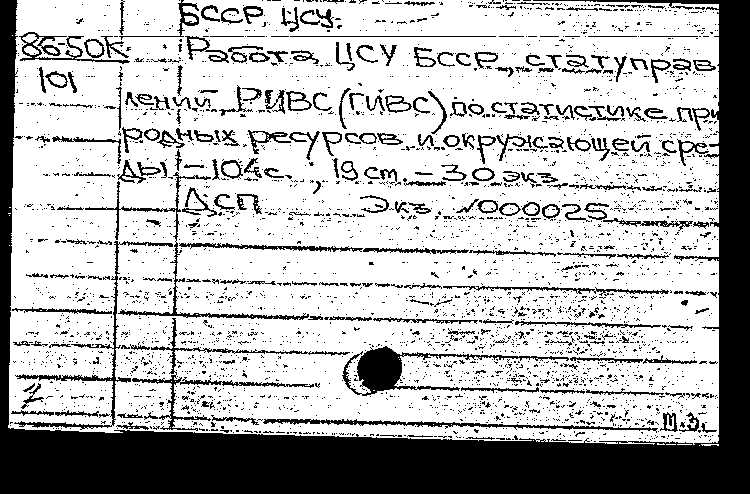 БССР. ЦСУ.
86-50К Работа ЦСУ БССР, статуправ
101
лений, РИВС (ГИВС) по статистике при
родных ресурсов и окружающей сре-
ды – 104с. ; 19 см. – 30 экз.
ДСП Экз. №000025
т.з.